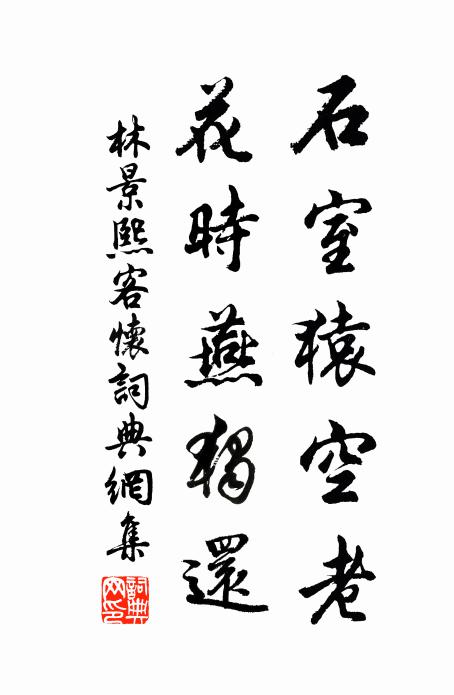 石室猿空老
花時燕獨還
林景熙客懷詞典網集
詞典
網印